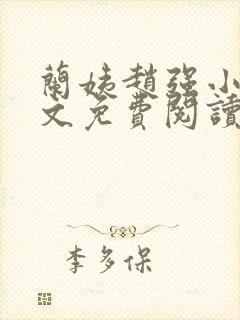 蘭姨趙强小
文免費閱讀
李多保